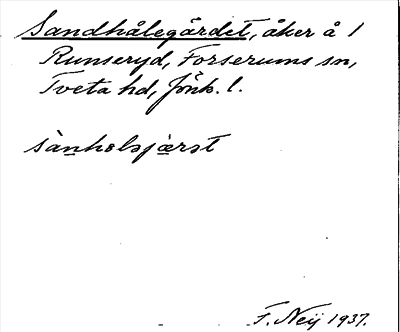 Sandhålegärdet, åker å 1
Runseryd, Forserums sn,
Tveta hd, Jönk. l.
F. Neij 1937.